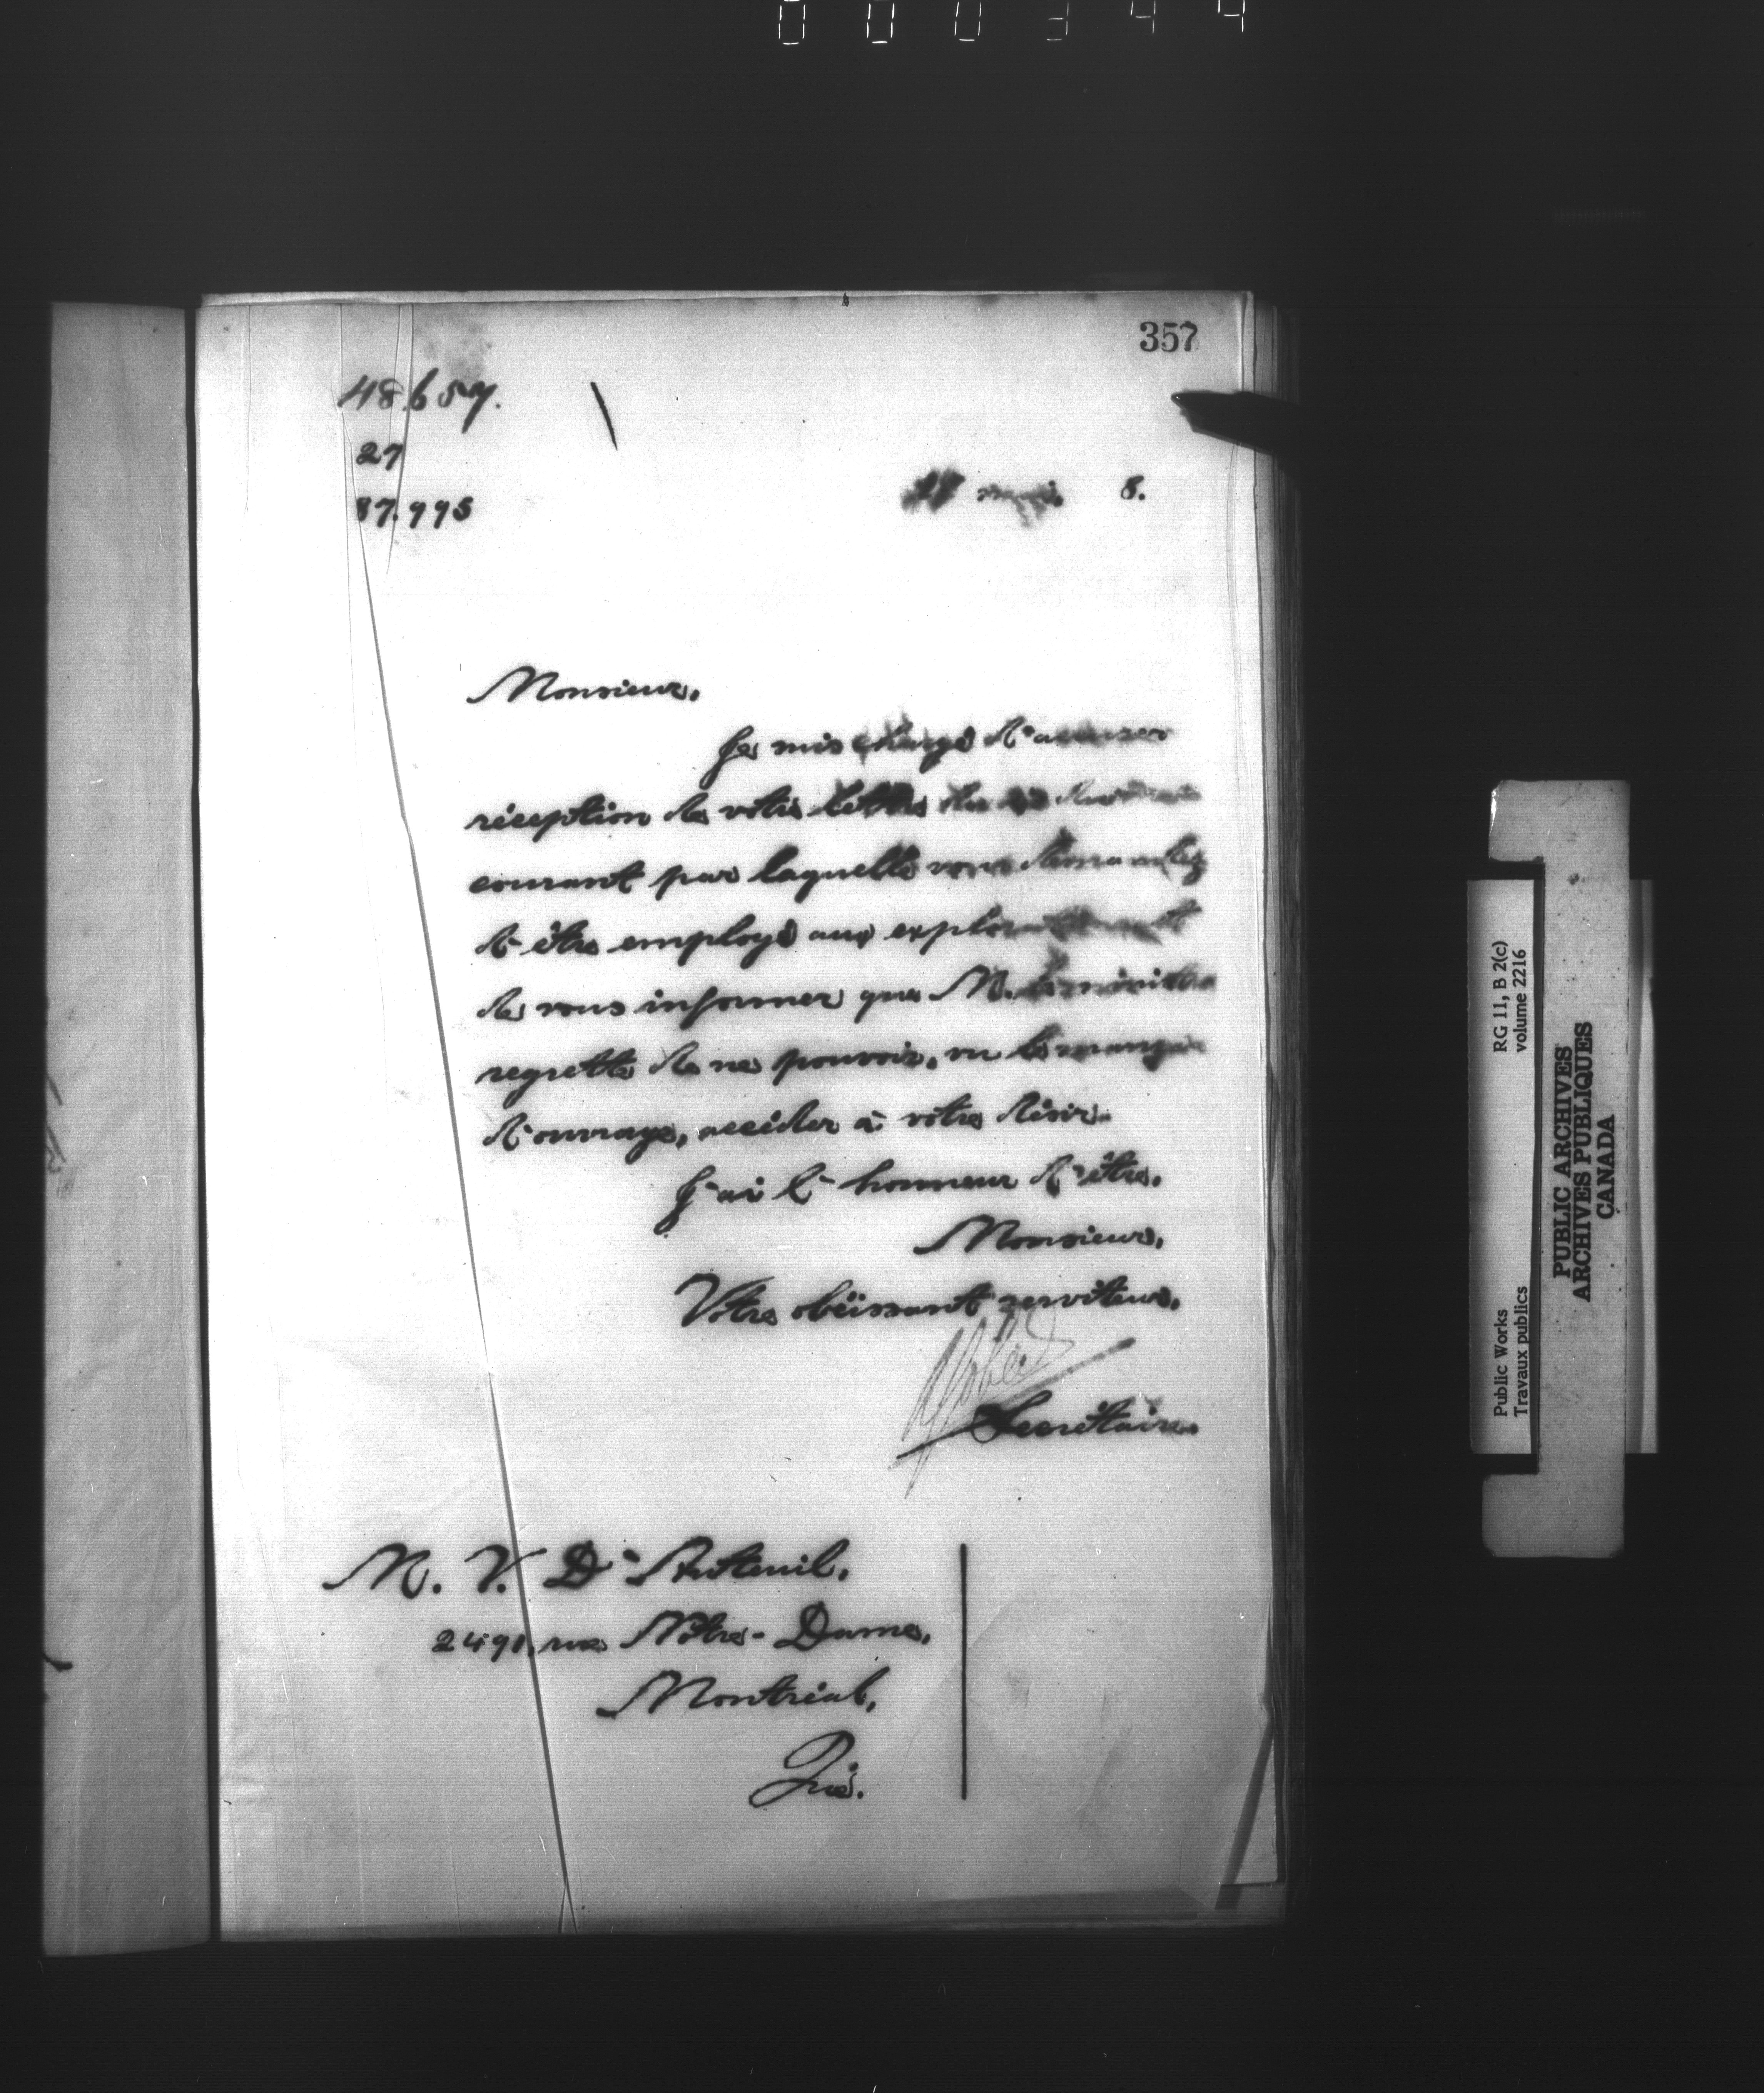 000344
357
48.657.
27
87.995
mai. 8.
Monsieur,
Je suis chargé d'accuser
réception de votre lettre du
courant par laquelle vous demandez
d'être employé aux explorations et
de vous informer que M. le ministre
regrette de ne pouvoir, vu le manque
d'ouvrage, accéder à votre désir.
J'ai l'honneur d'être,
Monsieur,
Votre obéissant serviteur,
Secrétaire.
M. V. D'Auteuil,
2491, rue Notre-Dame,
Montréal,
Qué.
Public Works
Travaux publics
RG 11, B 2(c)
volume 2216
PUBLIC ARCHIVES
ARCHIVES PUBLIQUES
CANADA